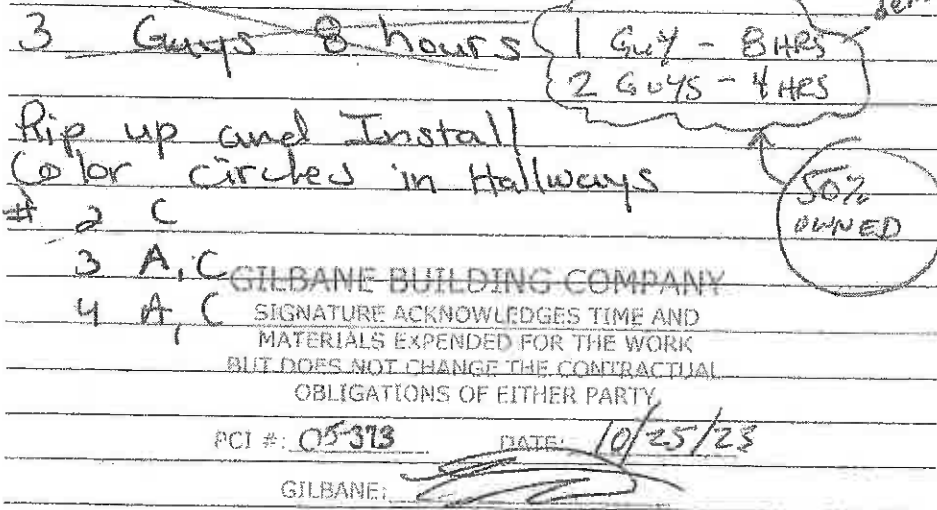 3 Guys 8 hours
1 GUY - 8 HRS
2 GUYS - 4 HRS
Rip up and Install
Color circles in Hallways
# 2 C
50% OWNED
3 A, C
4 A, C
GILBANE BUILDING COMPANY
SIGNATURE ACKNOWLEDGES TIME AND
MATERIALS EXPENDED FOR THE WORK
BUT DOES NOT CHANGE THE CONTRACTUAL
OBLIGATIONS OF EITHER PARTY
PCI #: 05-373 DATE: 10/25/23
GILBANE: